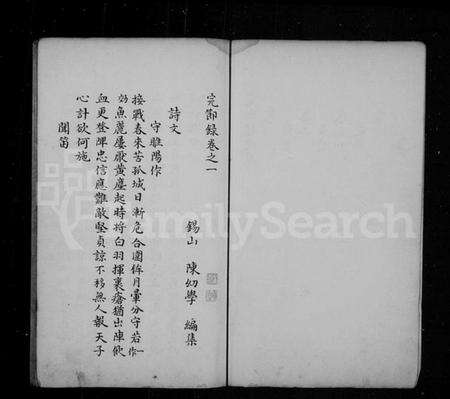 完節錄卷之一
錫山 陳幼學 編集
詩文
守睢陽作
接戰春來苦孤城日漸危合圍侔月暈分守若一作
効魚麗屢厭黃塵起時將白羽揮裹瘡猶出陣飲
血更登陴忠信應難敵堅貞諒不移無人報天子
心計欲何施
聞笛
FamilySearch